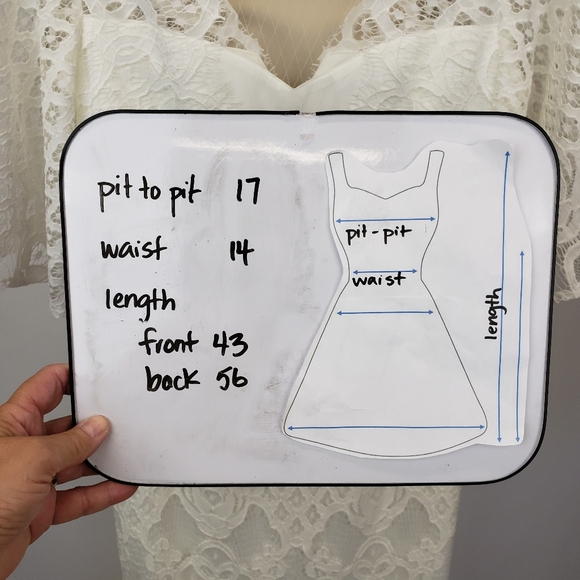 pit to pit 17
waist 14
length
front 43
back 56
pit-pit
waist
length